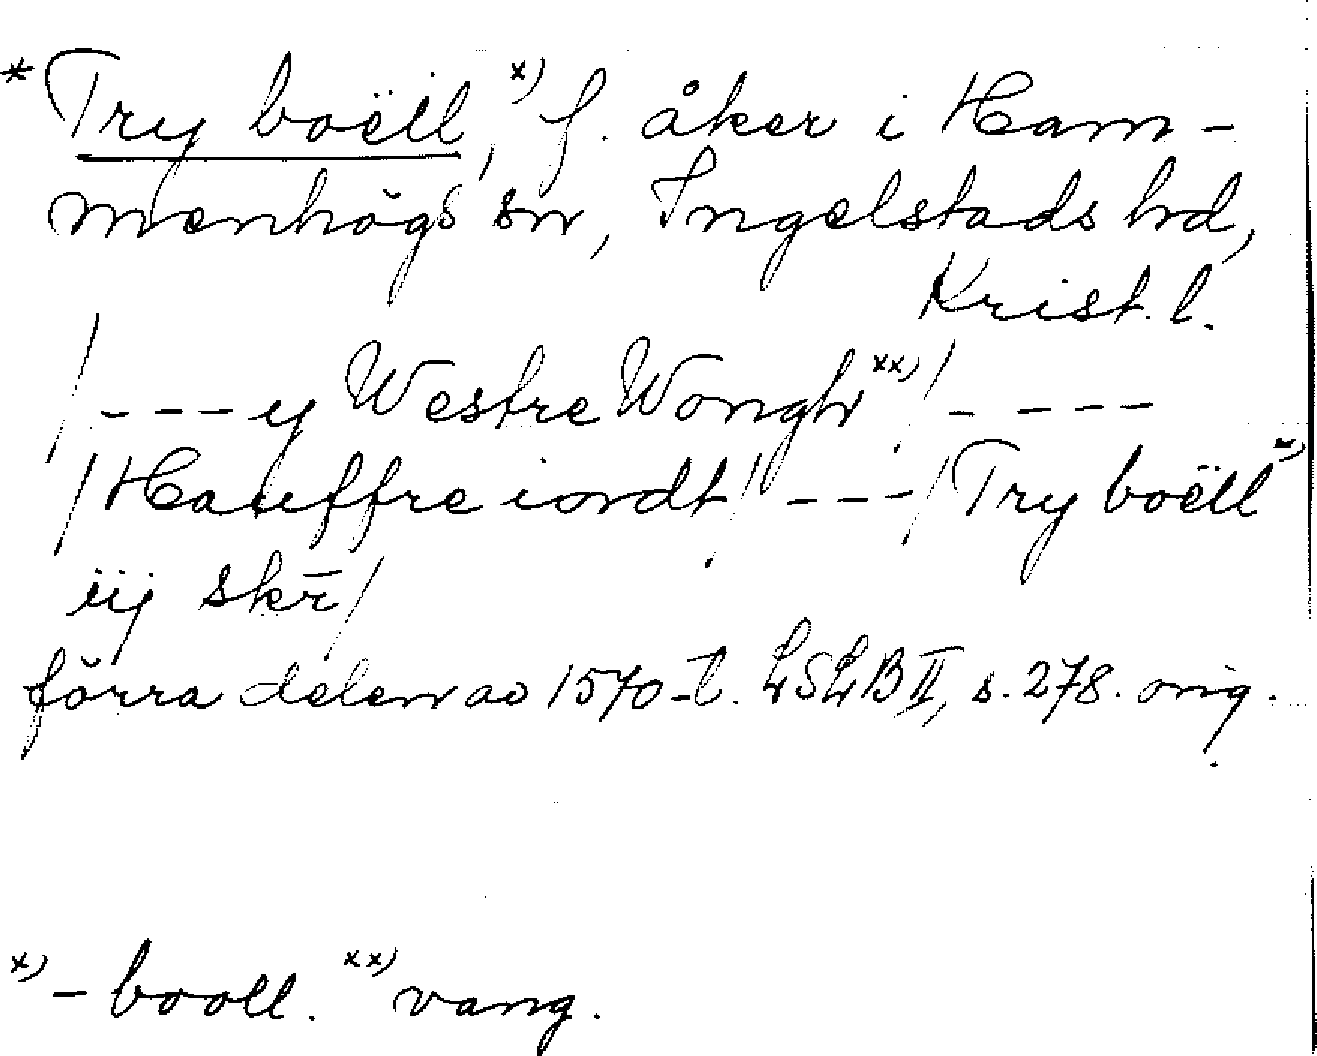 * Try boëll,ˣ⁾ f. åker i Ham-
menhögs sn, Ingelstads hd,
Krist. l.
/ - - - y Westre Wonghˣˣ⁾/ - - - -
/ Hauffre iordt / - - - / Try boëllˣ⁾
iij skr̄ /
förra delen av 1570-t. LSLB II, s. 278. orig.
ˣ⁾ - booll. ˣˣ⁾ vang.